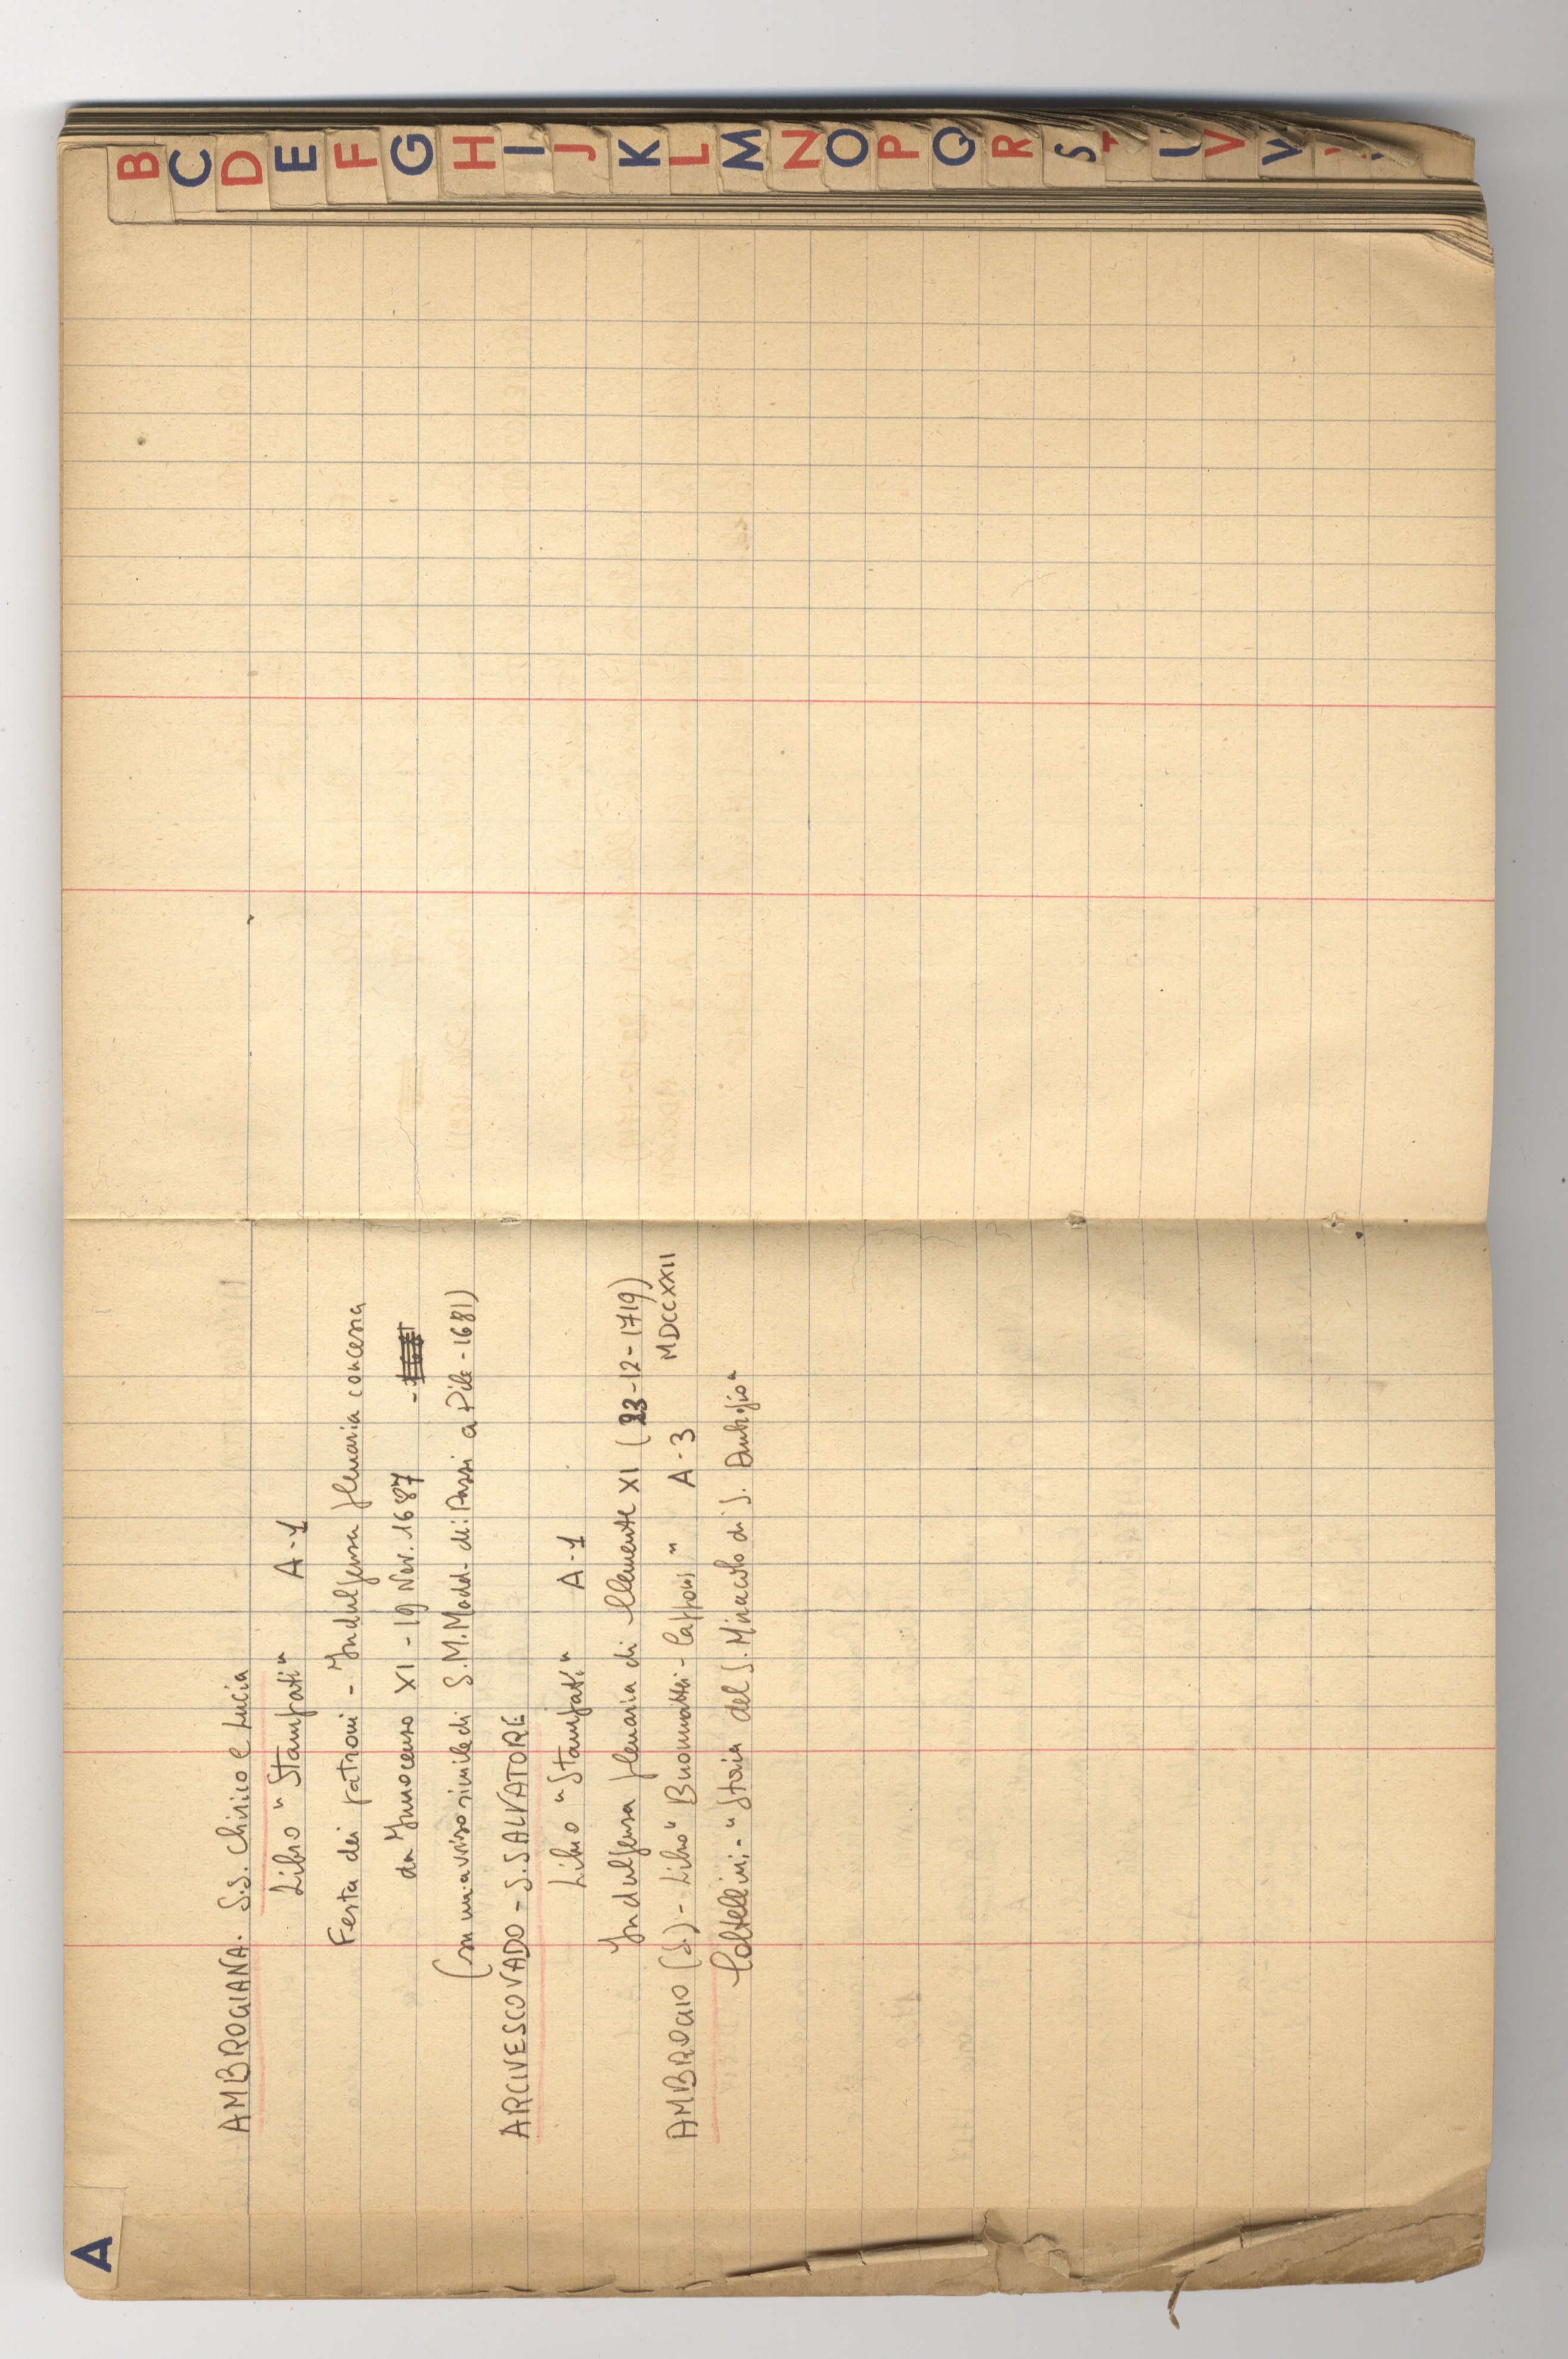 A
AMBROGIANA. S.S. Chirico e Lucia
Libro "Stampati" A-1
Festa dei patroni - Indulgenza plenaria concessa
da Innocenzo XI - 19 Nov. 1687 -
(su un avviso simile di S.M. Madd. dei Pazzi a Pile - 1681)
ARCIVESCOVADO - S. SALVATORE
Libro "Stampati" A-1
Indulgenza plenaria di Clemente XI (23-12-1719)
AMBROGIO (S.) - Libro "Buonmattei - Capponi" A-3 MDCCXXII
Coltellini - "Storia del S. Miracolo di S. Ambrogio"
B
C
D
E
F
G
H
I
J
K
L
M
N
O
P
Q
R
S
T
U
V
W